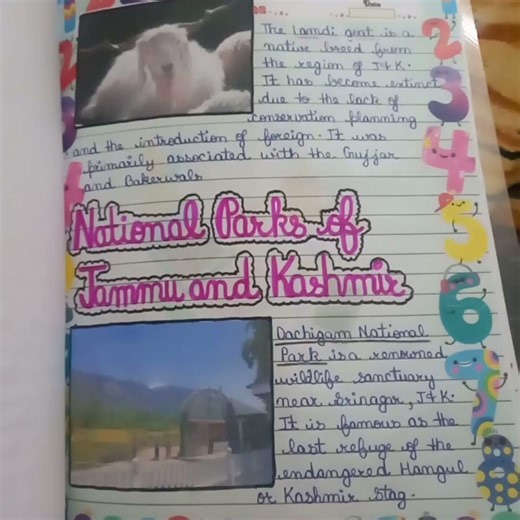 Date
The Lamdi goat is a
native breed from
the region of J&K.
It has become extinct
due to the lack of
conservation planning
and the introduction of foreign. It was
primarily associated with the Gujjar
and Bakerwals
National Parks of
Jammu and Kashmir
Dachigam National
Park is a renowned
wildlife sanctuary
near Srinagar, J&K.
It is famous as the
last refuge of the
endangered Hangul
or Kashmir stag.
2
3
4
5
6
7
8